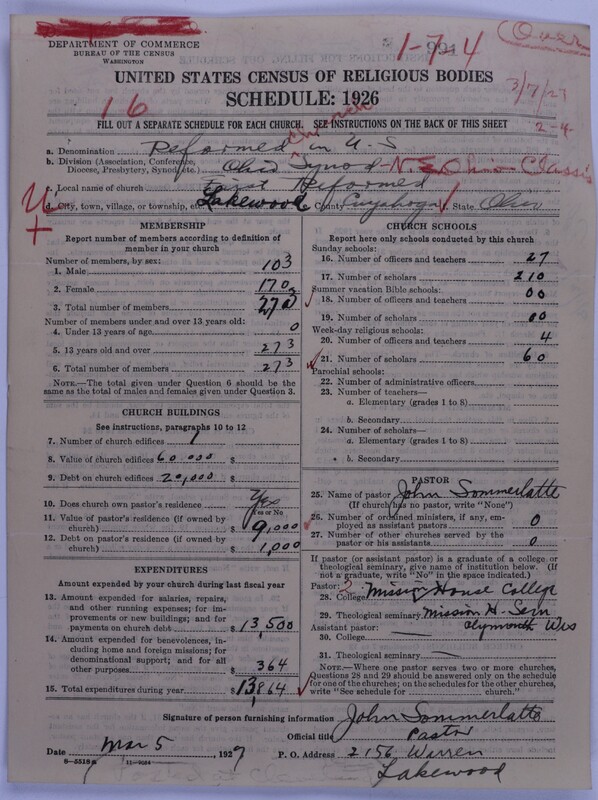 DEPARTMENT OF COMMERCE
BUREAU OF THE CENSUS
WASHINGTON
1-7-4
Over
UNITED STATES CENSUS OF RELIGIOUS BODIES
SCHEDULE: 1926
16
3/7/27
2-4
FILL OUT A SEPARATE SCHEDULE FOR EACH CHURCH. SEE INSTRUCTIONS ON THE BACK OF THIS SHEET
a. Denomination Reformed Church in U.S
b. Division (Association, Conference, Diocese, Presbytery, Synod, etc.) Ohio Synod - N.E. Ohio - Classis
c. Local name of church First Reformed
d. City, town, village, or township, etc. Lakewood County Cuyahoga State Ohio
MEMBERSHIP
Report number of members according to definition of member in your church
Number of members, by sex:
1. Male 103
2. Female 170
3. Total number of members 273
Number of members under and over 13 years old:
4. Under 13 years of age 0
5. 13 years old and over 273
6. Total number of members 273
NOTE.—The total given under Question 6 should be the same as the total of males and females given under Question 3.
CHURCH BUILDINGS
See instructions, paragraphs 10 to 12
7. Number of church edifices 1
8. Value of church edifices 60,000 $
9. Debt on church edifices 20,000 $
10. Does church own pastor's residence Yes
Yes or No
11. Value of pastor's residence (if owned by church) $ 9,000
12. Debt on pastor's residence (if owned by church) $ 1,000
EXPENDITURES
Amount expended by your church during last fiscal year
13. Amount expended for salaries, repairs, and other running expenses; for improvements or new buildings; and for payments on church debt $ 13,500
14. Amount expended for benevolences, including home and foreign missions; for denominational support; and for all other purposes $ 364
15. Total expenditures during year $ 13,864
CHURCH SCHOOLS
Report here only schools conducted by this church
Sunday schools:
16. Number of officers and teachers 27
17. Number of scholars 210
Summer vacation Bible schools:
18. Number of officers and teachers 00
19. Number of scholars 00
Week-day religious schools:
20. Number of officers and teachers 4
21. Number of scholars 60
Parochial schools:
22. Number of administrative officers
23. Number of teachers—
a. Elementary (grades 1 to 8)
b. Secondary
24. Number of scholars—
a. Elementary (grades 1 to 8)
b. Secondary
PASTOR
25. Name of pastor John Sommerlatte
(If church has no pastor, write "None")
26. Number of ordained ministers, if any, employed as assistant pastors 0
27. Number of other churches served by the pastor or his assistants 0
If pastor (or assistant pastor) is a graduate of a college or theological seminary, give name of institution below. (If not a graduate, write "No" in the space indicated.)
Pastor:
28. College Mission House College
29. Theological seminary Mission H. Sem
Plymouth Wis
Assistant pastor:
30. College
31. Theological seminary
NOTE.—Where one pastor serves two or more churches, Questions 28 and 29 should be answered only on the schedule for one of the churches; on the schedules for the other churches, write "See schedule for church."
Signature of person furnishing information John Sommerlatte
Official title Pastor
Date Mar 5, 1927 P. O. Address 2156 Warren
Lakewood
8-5518a 11-9064